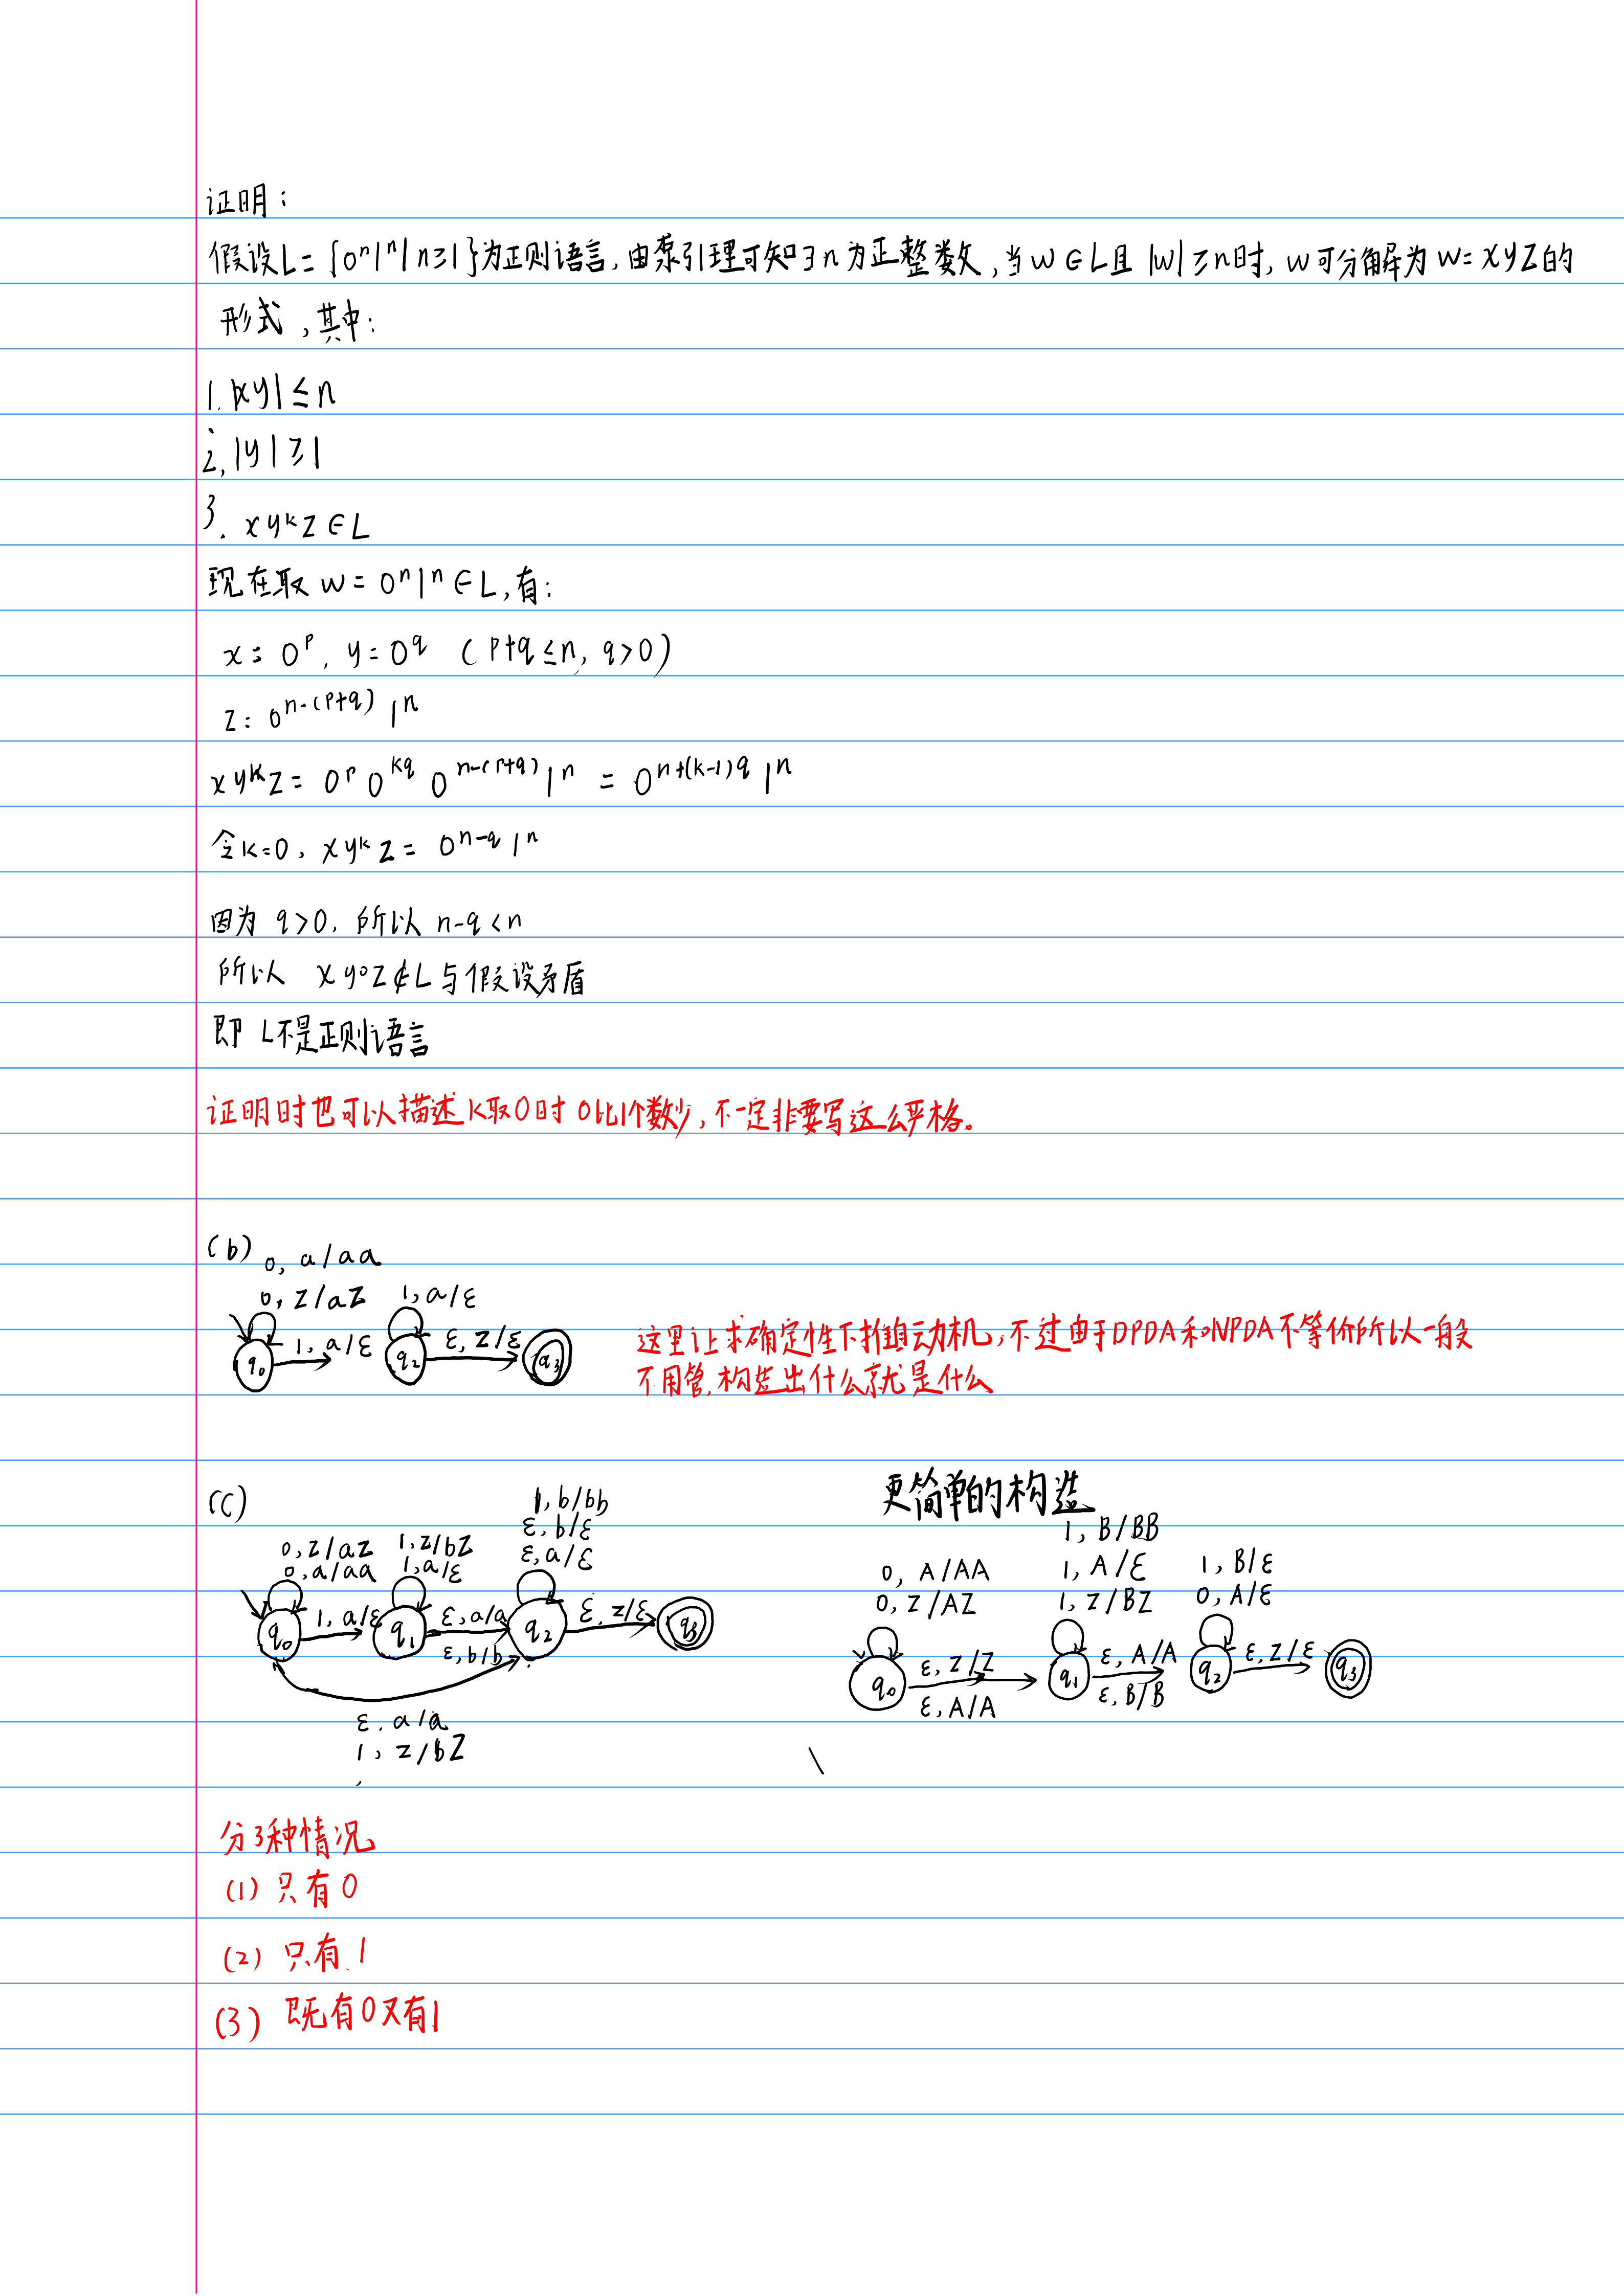 证明:
假设L={0ⁿ1ⁿ|n≥1}为正则语言,由泵引理可知∃n为正整数,当w∈L且|w|≥n时,w可分解为w=xyz的
形式,其中:
1.|xy|≤n
2.|y|≥1
3.xyᵏz∈L
现在取w=0ⁿ1ⁿ∈L,有:
x=0^p,y=0^q (p+q≤n,q>0)
z=0^{n-(p+q)}1ⁿ
xyᵏz=0^p0^{kq}0^{n-(p+q)}1ⁿ=0^{n+(k-1)q}1ⁿ
令k=0,xyᵏz=0^{n-q}1ⁿ
因为q>0,所以n-q<n
所以 xy⁰z∉L与假设矛盾
即L不是正则语言
证明时也可以描述k取0时0比1个数少,不一定非要写这么严格。
(b)
0,a/aa
0,z/az
1,a/ε
q₀
1,a/ε
q₂
ε,z/ε
q₃
这里让求确定性下推自动机,不过由于DPDA和NPDA不等价所以一般
不用管,构造出什么就是什么
(c)
0,z/az
0,a/aa
1,z/bz
1,a/ε
1,b/bb
ε,b/ε
ε,a/ε
q₀
1,a/ε
q₁
ε,a/a
ε,b/b
q₂
ε,z/ε
q₃
ε,a/a
1,z/bz
更简单的构造
0,A/AA
0,Z/AZ
1,B/BB
1,A/ε
1,Z/BZ
1,B/ε
0,A/ε
q₀
ε,Z/Z
ε,A/A
q₁
ε,A/A
ε,B/B
q₂
ε,Z/ε
q₃
分3种情况
(1)只有0
(2)只有1
(3)既有0又有1